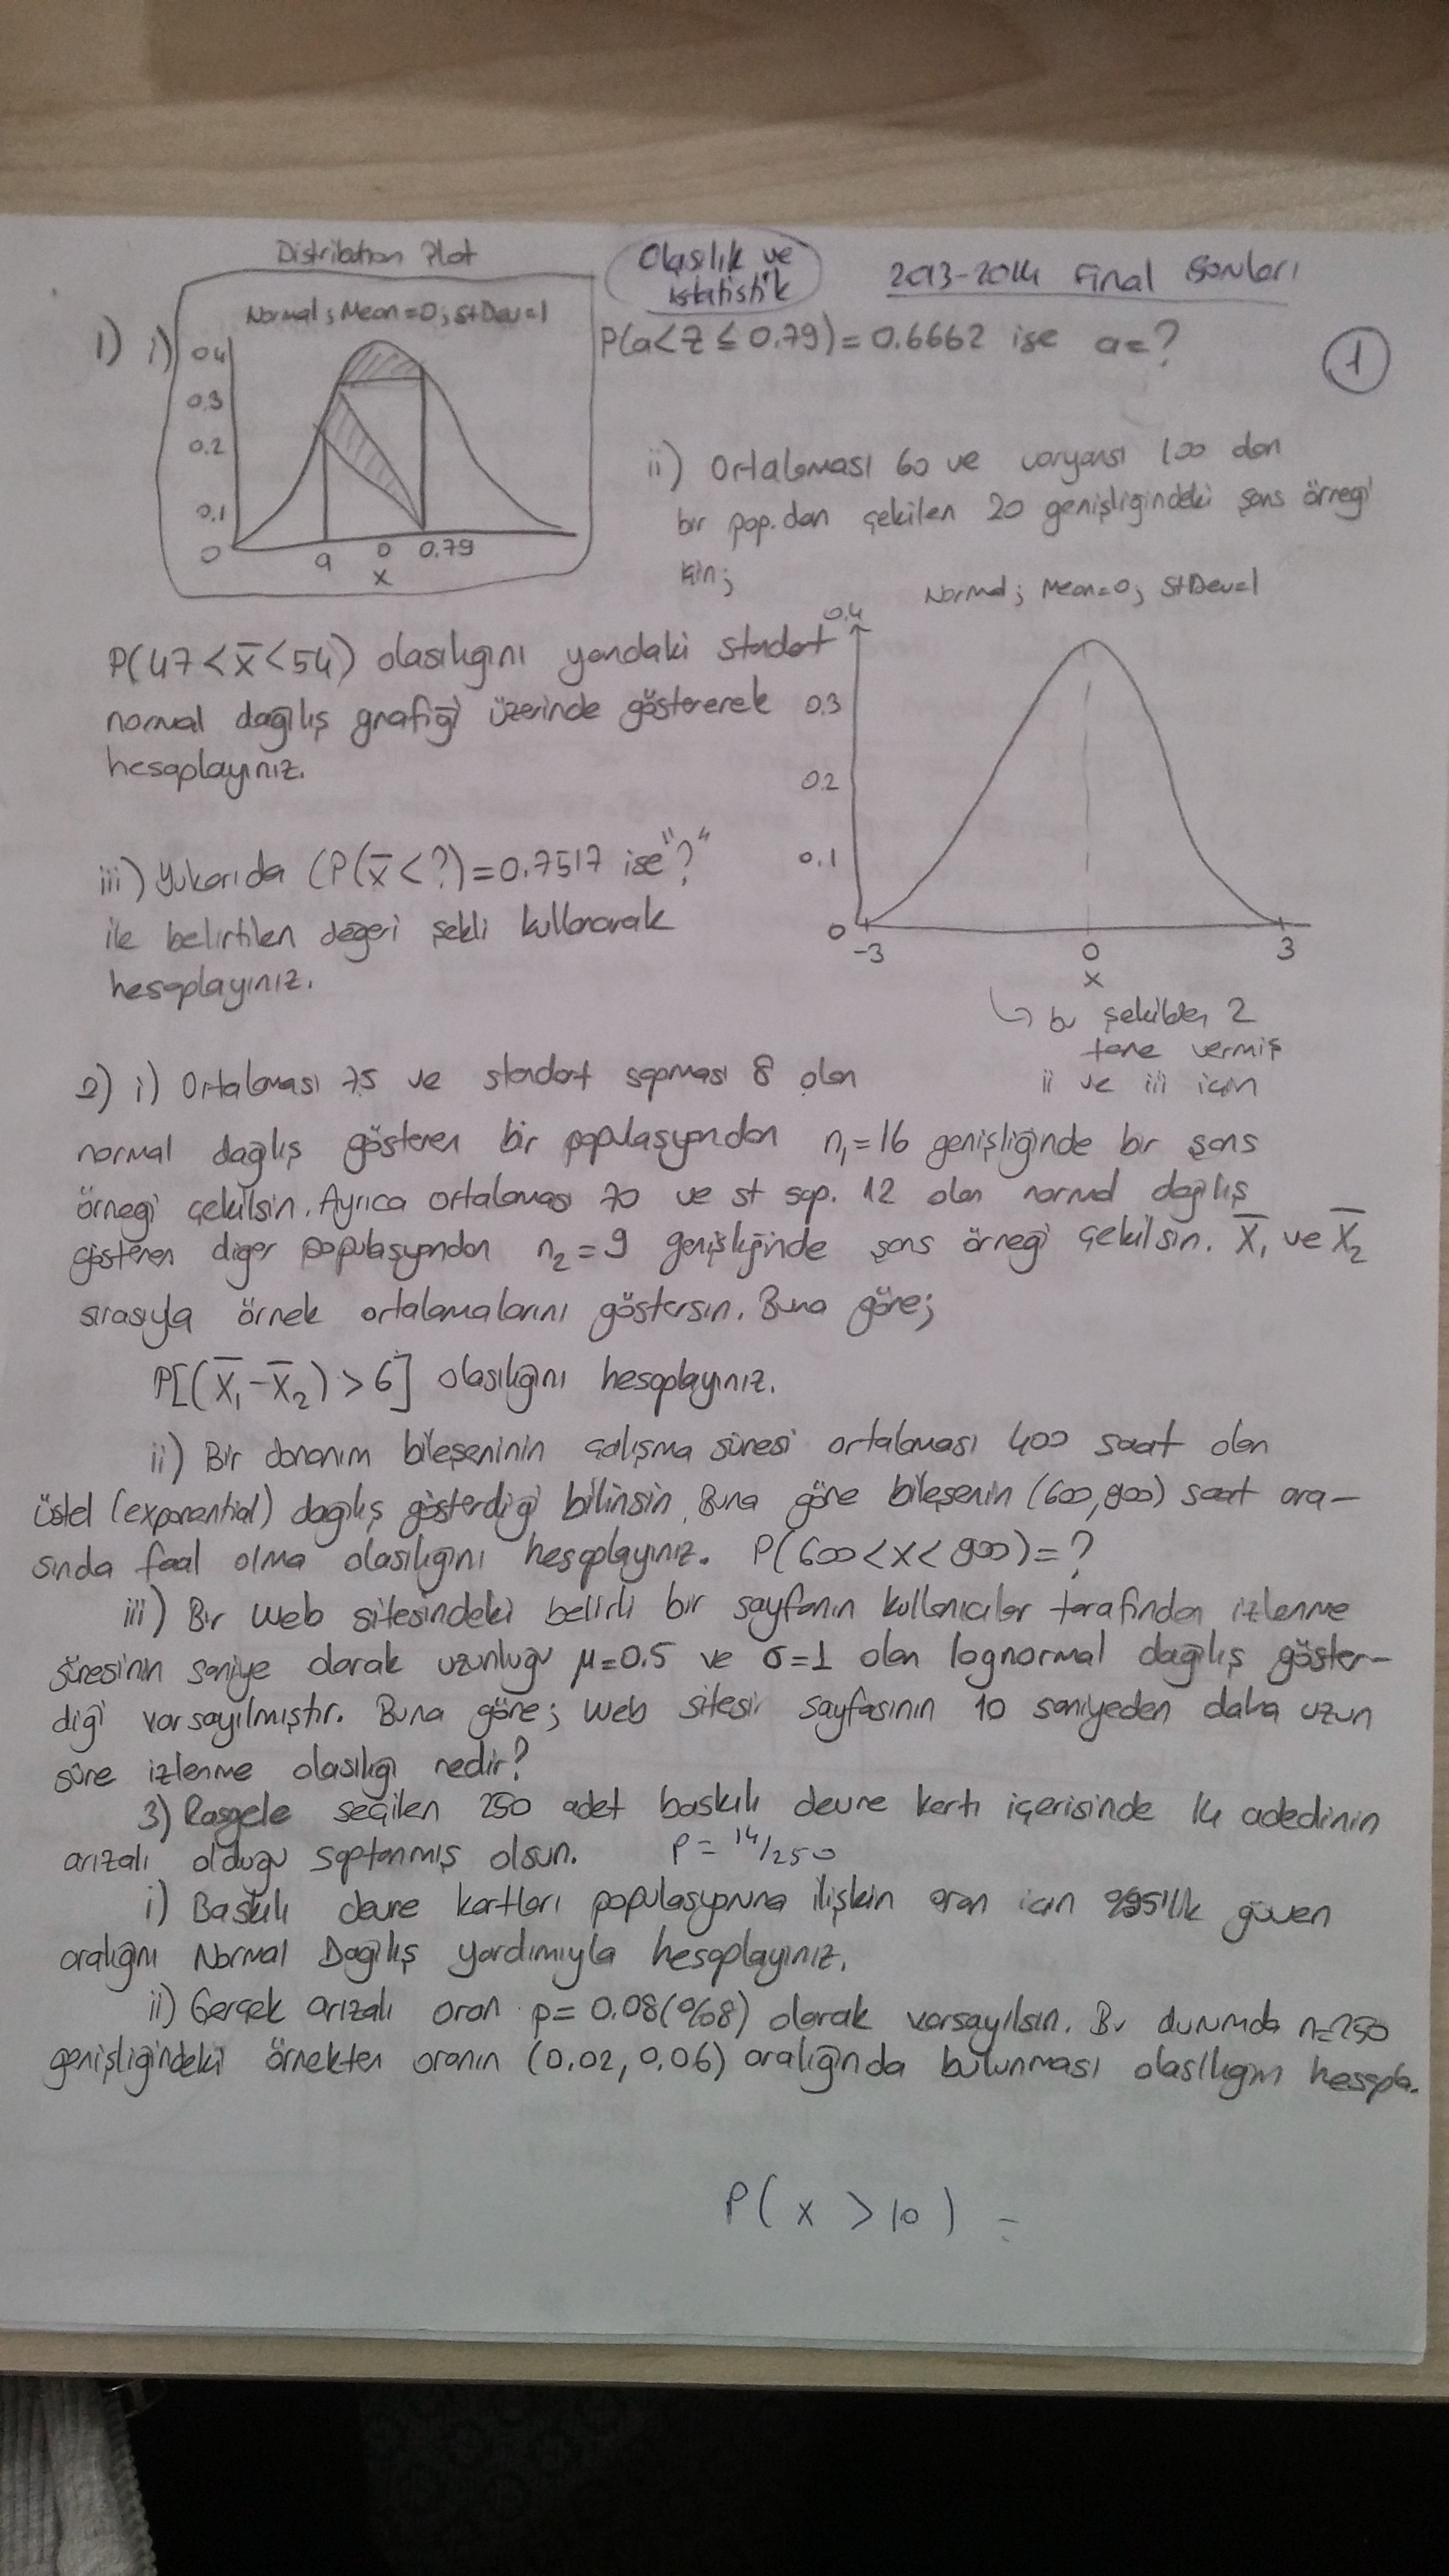 Distribution Plot
Olasılık ve
istatistik
2013-2014 Final Soruları
Normal; Mean=0; StDev=1
1) i)
0.4
0.3
0.2
0.1
0
a
0
0.79
x
P(a<Z≤0.79)=0.6662 ise a=?
1
ii) Ortalaması 60 ve varyansı 100 olan
bir pop.dan çekilen 20 genişliğindeki şans örneği
için;
P(47<x̄<54) olasılığını yandaki standart
normal dağılış grafiği üzerinde göstererek
hesaplayınız.
iii) Yukarıda (P(x̄<?)=0.7517 ise "?"
ile belirtilen değeri şekli kullanarak
hesaplayınız.
Normal; Mean=0; StDev=1
0.4
0.3
0.2
0.1
0
-3
0
3
x
↳ bu şekilden 2
tane vermiş
ii ve iii için
2) i) Ortalaması 75 ve standart sapması 8 olan
normal dağılış gösteren bir populasyondan n₁=16 genişliğinde bir şans
örneği çekilsin. Ayrıca ortalaması 70 ve st sap. 12 olan normal dağılış
gösteren diğer populasyondan n₂=9 genişliğinde şans örneği çekilsin. X̄₁ ve X̄₂
sırasıyla örnek ortalamalarını göstersin. Buna göre;
P[(X̄₁-X̄₂)>6] olasılığını hesaplayınız.
ii) Bir donanım bileşeninin çalışma süresi ortalaması 400 saat olan
üstel (exponential) dağılış gösterdiği bilinsin. Buna göre bileşenin (600,800) saat ara-
sında faal olma olasılığını hesaplayınız. P(600<x<800)=?
iii) Bir web sitesindeki belirli bir sayfanın kullanıcılar tarafından izlenme
süresinin saniye olarak uzunluğu μ=0.5 ve σ=1 olan lognormal dağılış göster-
diği varsayılmıştır. Buna göre; web sitesi sayfasının 10 saniyeden daha uzun
süre izlenme olasılığı nedir?
3) Rasgele seçilen 250 adet baskılı devre kartı içerisinde 14 adedinin
arızalı olduğu saptanmış olsun. P = 14/250
i) Baskılı devre kartları populasyonuna ilişkin oran için %95'lik güven
aralığını Normal Dağılış yardımıyla hesaplayınız.
ii) Gerçek arızalı oran p= 0.08(%8) olarak varsayılsın. Bu durumda n=250
genişliğindeki örnekten oranın (0.02, 0.06) aralığında bulunması olasılığını hesapla.
P(x >10) =